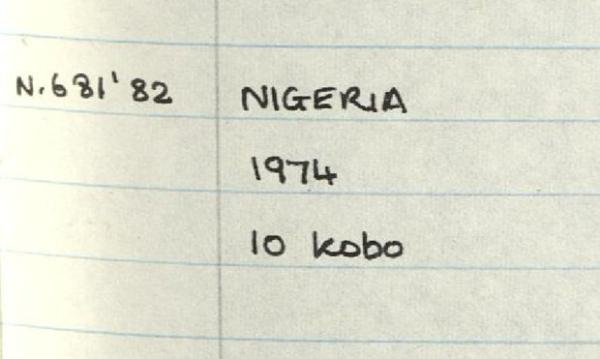 N.681'82 NIGERIA
1974
10 kobo